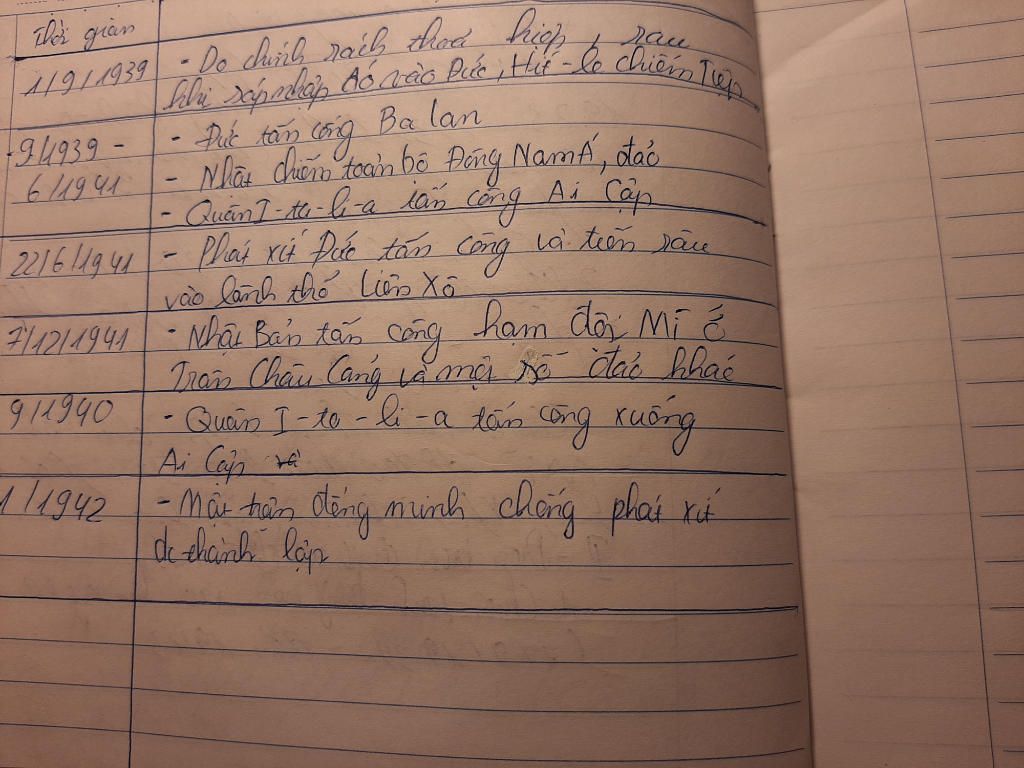 Thời gian
1/9/1939
- Do chính sách thoả hiệp, sau
khi sáp nhập Áo vào Đức, Hít-le chiếm Tiệp
9/1939 -
6/1941
- Đức tấn công Ba Lan
- Nhật chiếm toàn bộ Đông Nam Á, đảo
- Quân I-ta-li-a tấn công Ai Cập
22/6/1941
- Phát xít Đức tấn công và tiến sâu
vào lãnh thổ Liên Xô
7/12/1941
- Nhật Bản tấn công hạm đội Mĩ ở
Trân Châu Cảng và một số đảo khác
9/1940
- Quân I-ta-li-a tấn công xuống
Ai Cập
1/1942
- Mặt trận đồng minh chống phát xít
đc thành lập